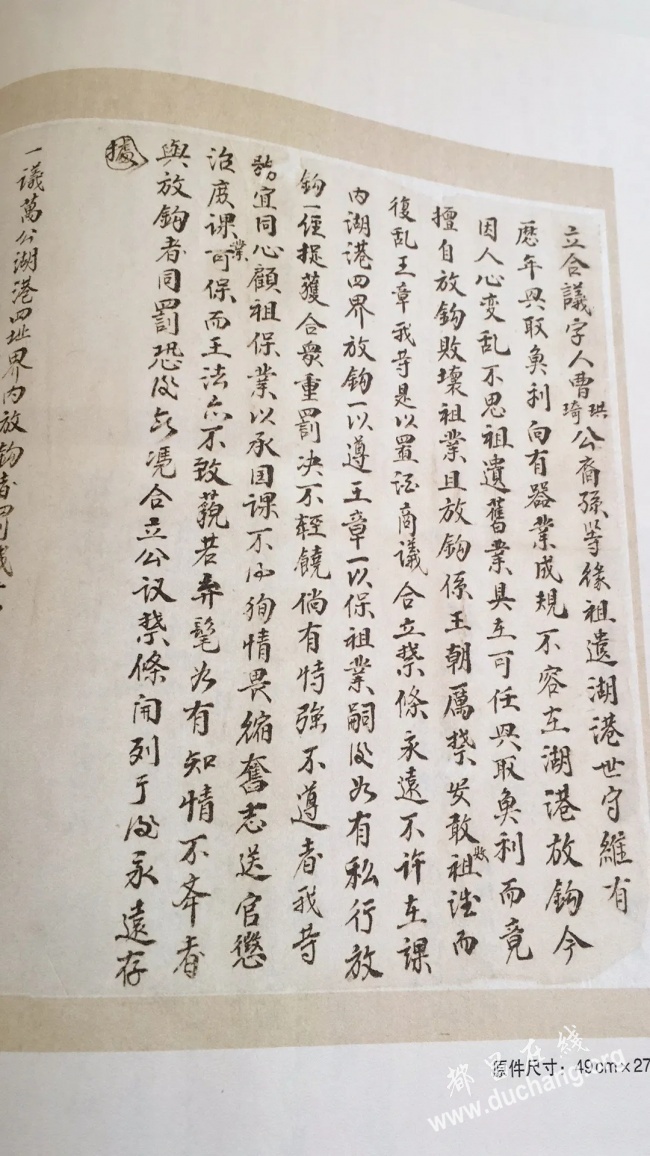 立合議字人曹珙琦公裔孫等緣祖遺湖港世守維有
歷年興取魚利向有器業成規不容在湖港放鈎今
因人心变乱不思祖遺舊業具在可任興取魚利而竟
擅自放鈎敗壞祖業且放鈎係王朝厲禁安敢祖賬而
復乱王章我等是以置酒商議合立禁條永遠不许在課
内湖港四界放鈎一以遵王章一以保祖業嗣後如有私行放
鈎一經捉獲合衆重罰决不輕饒倘有恃強不遵者我等
宜同心顧祖保業以承国課不得狥情畏縮奮志送官懲
治庶課業可保而王法亦不致藐若弁髦如有知情不奔者
與放鈎者同罰恐後無憑合立公议禁條開列于後永遠存
據
一議萬公湖港四址界内放鈎者罰
原件尺寸：49cm×27
都昌在线
www.duchang.org